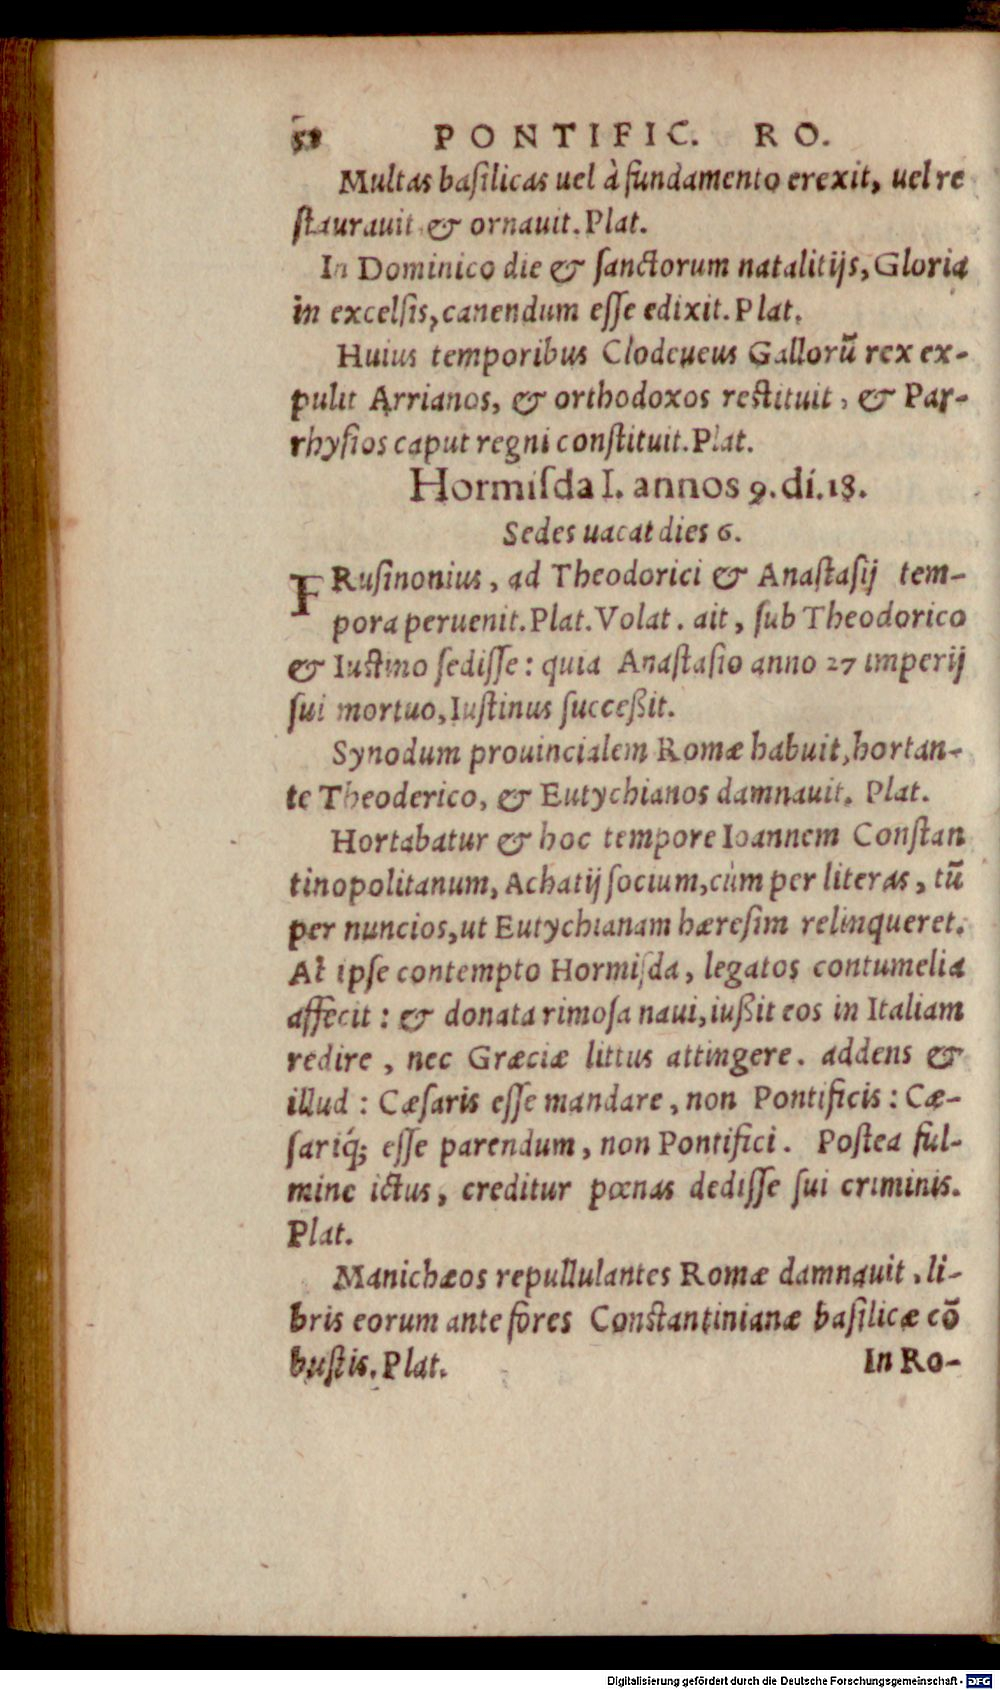 58 PONTIFIC. RO.
Multas basilicas uel à fundamento erexit, uel re
staurauit & ornauit. Plat.
In Dominico die & sanctorum natalitijs, Gloria
in excelsis, canendum esse edixit. Plat.
Huius temporibus Clodeueus Gallorū rex ex-
pulit Arrianos, & orthodoxos restituit, & Par-
rhysios caput regni constituit. Plat.
Hormisda I. annos 9. di. 18.
Sedes uacat dies 6.
FRusinonius, ad Theodorici & Anastasij tem-
pora peruenit. Plat. Volat. ait, sub Theodorico
& Iustino sedisse: quia Anastasio anno 27 imperij
sui mortuo, Iustinus succeßit.
Synodum prouincialem Romæ habuit, hortan-
te Theoderico, & Eutychianos damnauit. Plat.
Hortabatur & hoc tempore Ioannem Constan
tinopolitanum, Achatij socium, cùm per literas, tū
per nuncios, ut Eutychianam hæresim relinqueret.
At ipse contempto Hormisda, legatos contumelia
affecit: & donata rimosa naui, iußit eos in Italiam
redire, nec Græciæ littus attingere. addens &
illud: Cæsaris esse mandare, non Pontificis: Cæ-
sariq́; esse parendum, non Pontifici. Postea ful-
mine ictus, creditur pœnas dedisse sui criminis.
Plat.
Manichæos repullulantes Romæ damnauit, li-
bris eorum ante fores Constantinianæ basilicæ cō
bustis. Plat. In Ro-
Digitalisierung gefördert durch die Deutsche Forschungsgemeinschaft - DFG